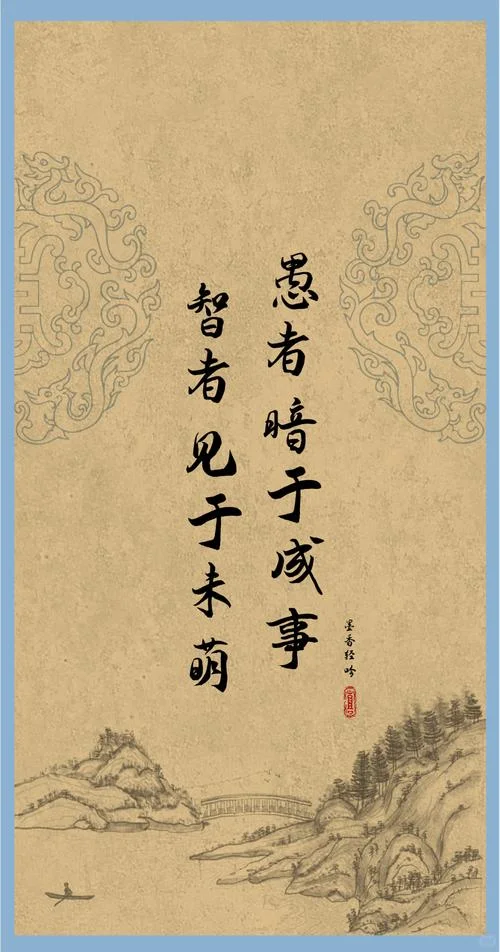 愚者暗于成事
智者见于未萌
墨香经吟